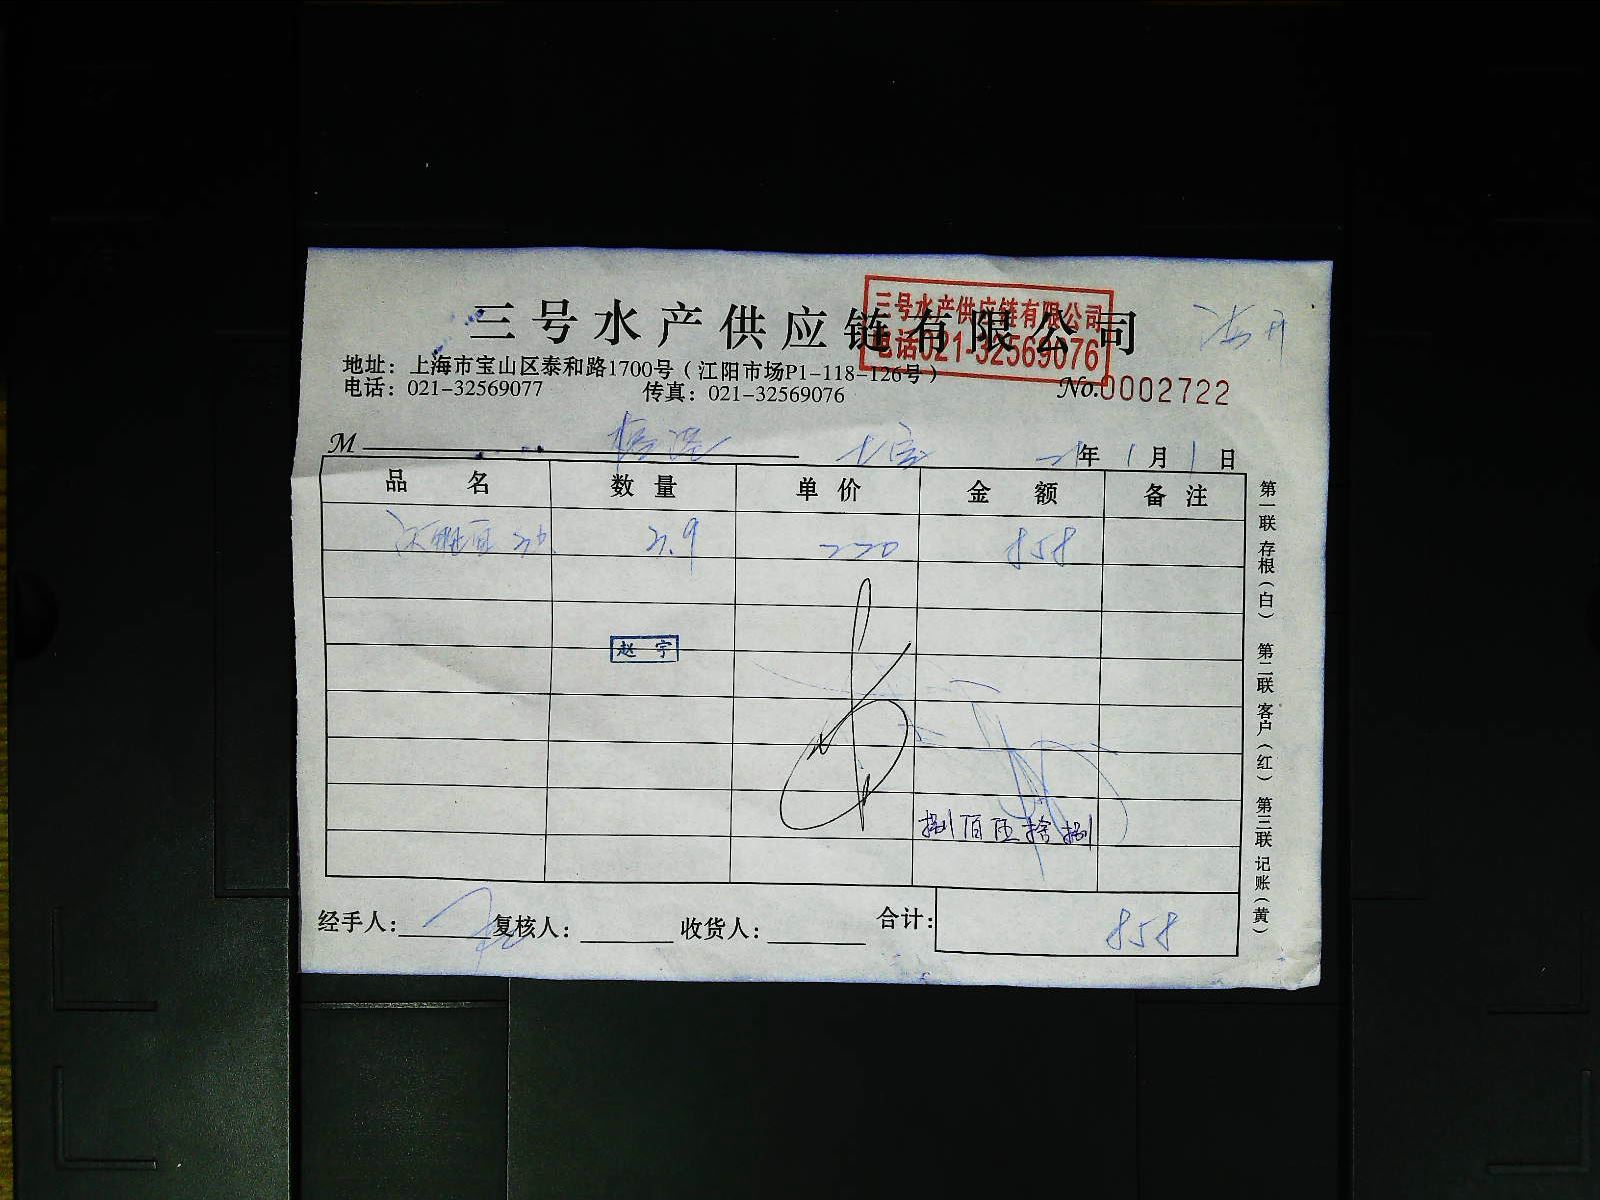 三号水产供应链有限公司
三号水产供应链有限公司
电话021-32569076
地址：上海市宝山区泰和路1700号（江阳市场P1-118-126号）
电话：021-32569077 传真：021-32569076
No.0002722
M 21年1月1日
品 名 数 量 单 价 金 额 备 注
3.9 220 858
赵 宇
捌佰伍拾捌
经手人： 复核人： 收货人： 合计： 858
第一联 存根（白） 第二联 客户（红） 第三联 记账（黄）